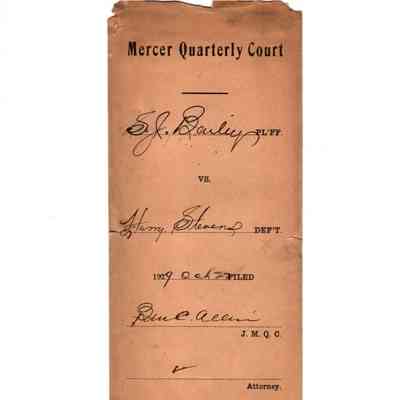 Mercer Quarterly Court
S.J. Bailey PL'FF.
VS.
Harry Stevens DEF'T.
1929 Oct 22 FILED
Ben C. Allin
J. M. Q. C.
Attorney.